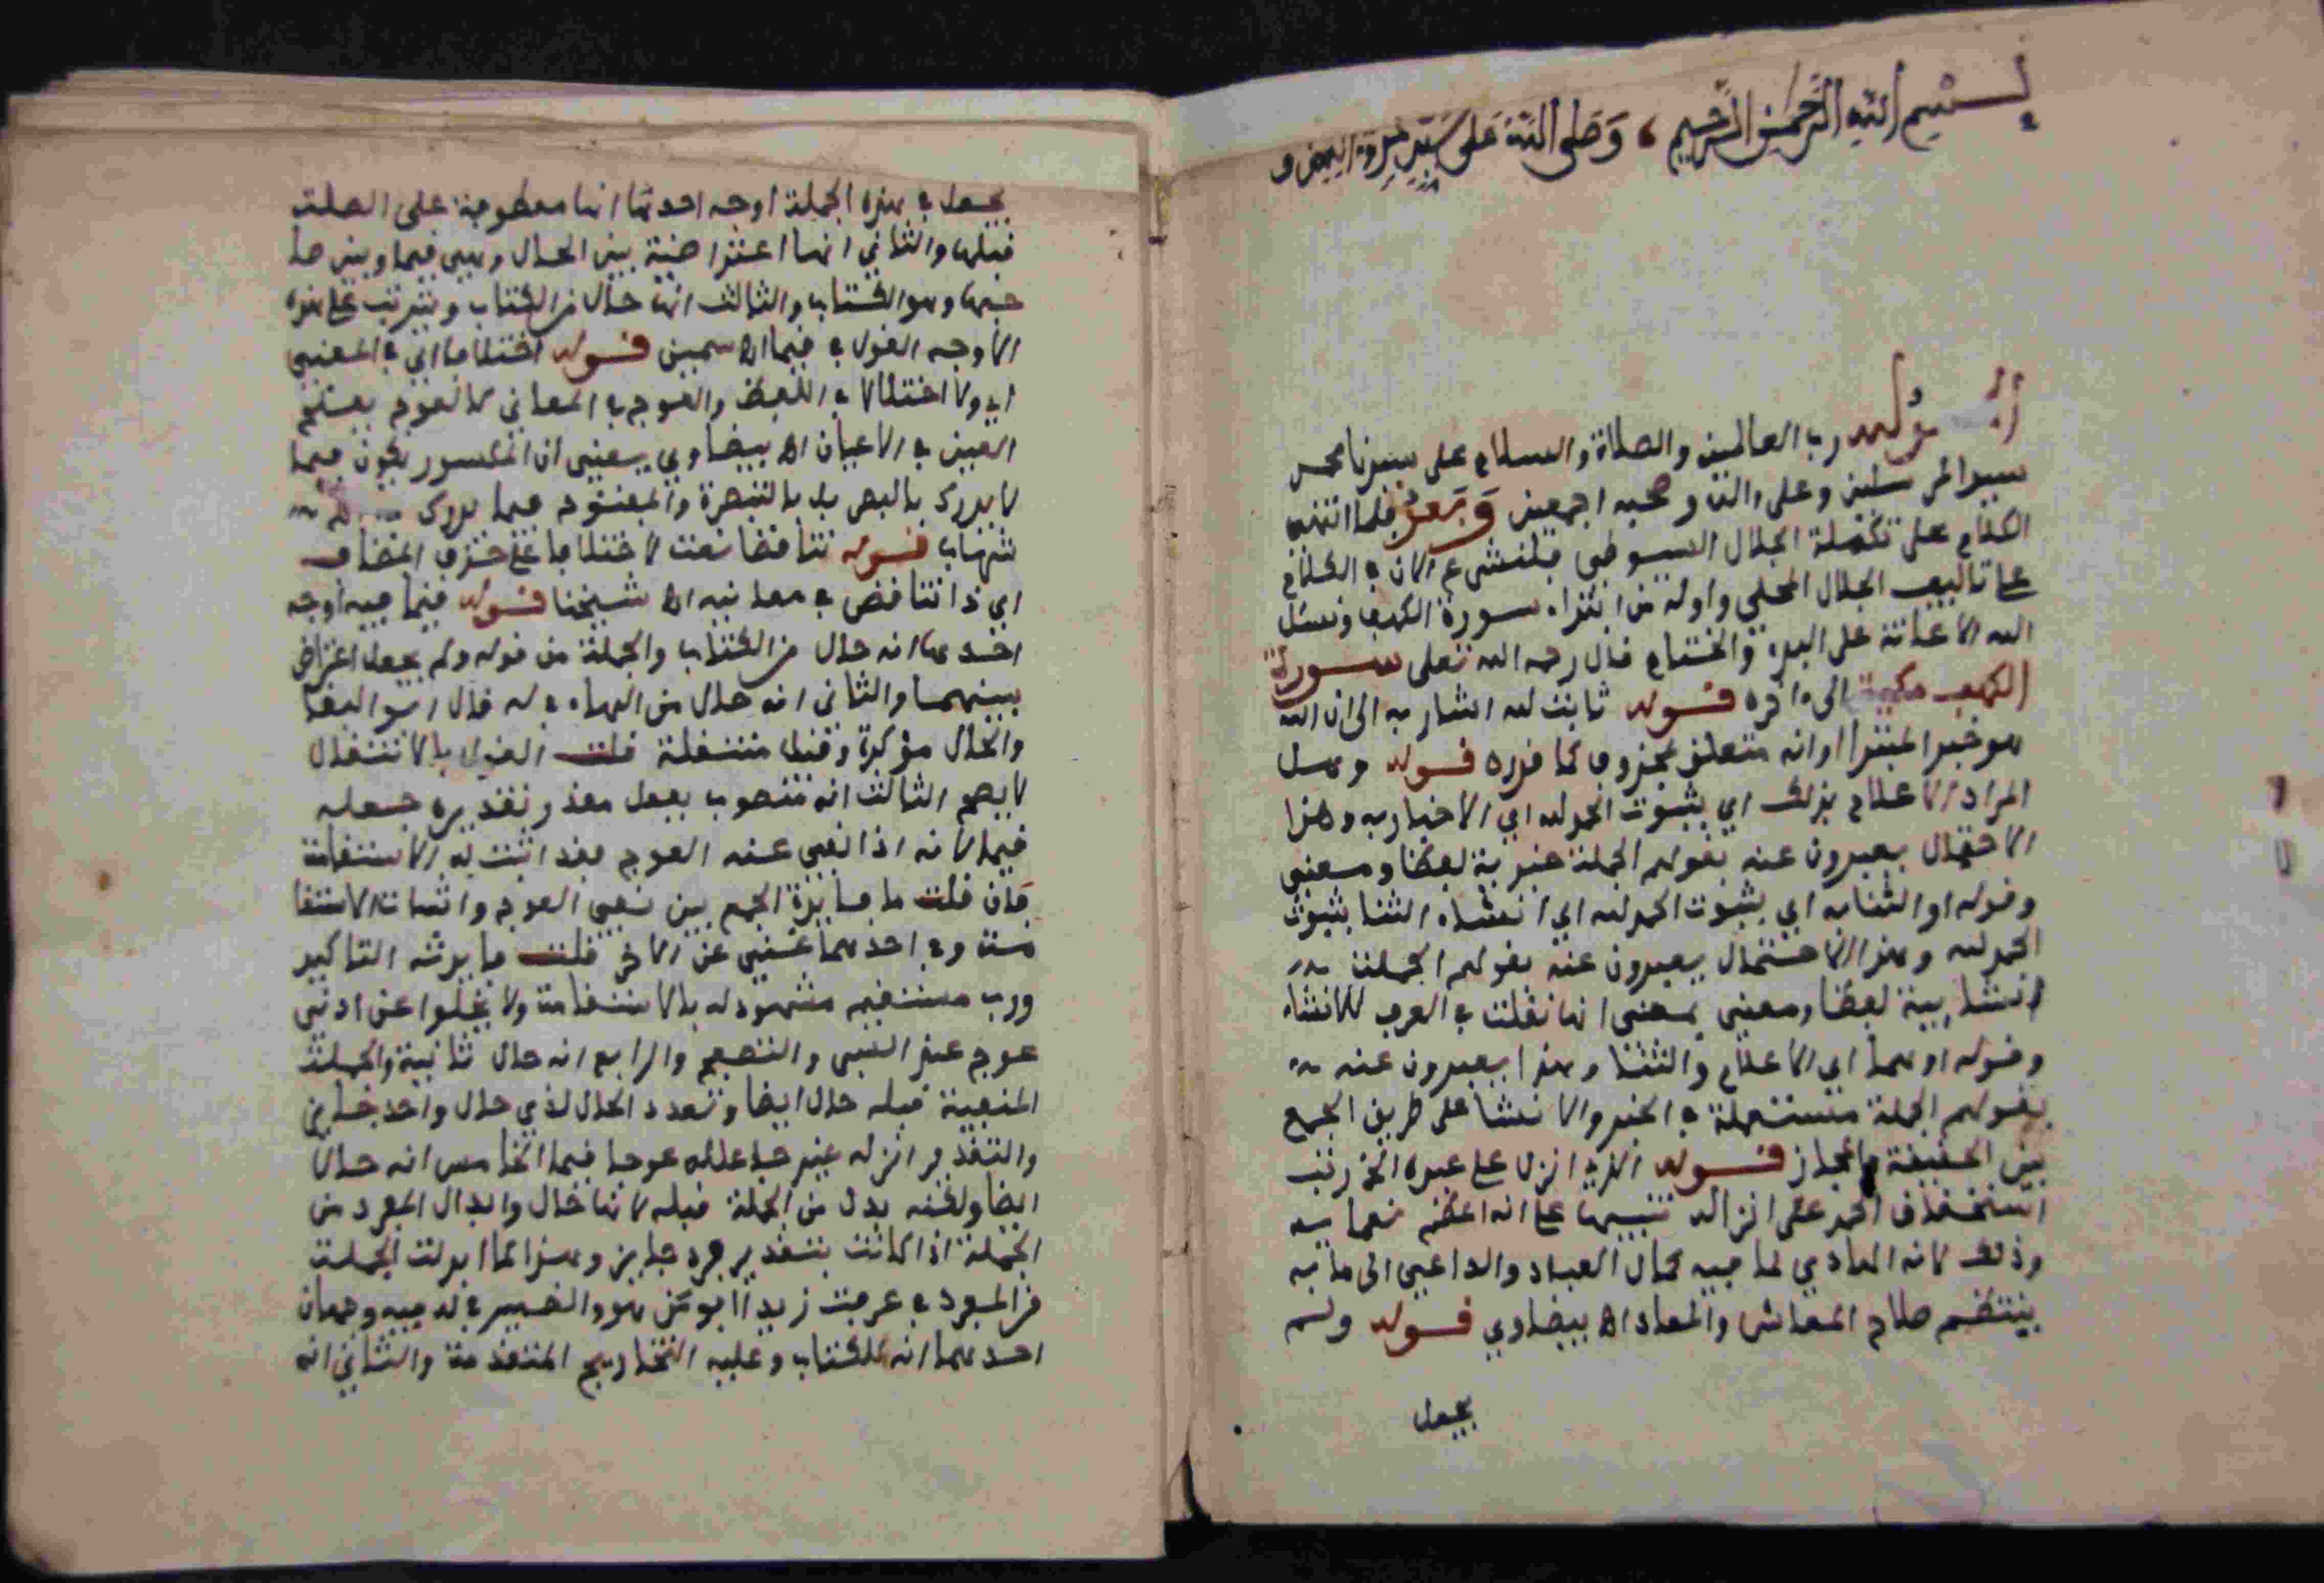 بسم الله الرحمن الرحيم وصلى الله على سيدنا محمد وآله
رب العالمين والصلاة والسلام على سيدنا محمد
سيد المرسلين وعلى آله وصحبه اجمعين وبعد فلما انتهى
الكلام على تكملة الجلال السيوطي فلنشرع الان في الكلام
على تاليف الجلال المحلي واوله من ابتداء سورة الكهف ونسئل
الله الاعانة على البدء والختام قال رحمه الله تعلى سورة
الكهف مكية الى ءاخره قوله ثابت لله اشار به الى ان لله
هو خبر المبتدا او انه متعلق بمحذوف كما قدره قوله وهل
المراد الاعلام بذلك اي بثبوت الحمد لله اي الاخبار به وهذا
الاحتمال يعبرون عنه بقولهم الجملة خبرية لفظا ومعنى
وقوله او الثنا به اي بثبوت الحمد لله اي انشاء الثنا بثبوت
الحمد لله وهذا الاحتمال يعبرون عنه بقولهم الجملة
انشايية لفظا ومعنى بمعنى انها نقلت في العرف للانشاء
وقوله او هما اي الاعلام والثنا وهذا يعبرون عنه
بقولهم الجملة مستعملة في الخبر والانشا على طريق الجمع
بين الحقيقة والمجاز قوله الذي انزل على عبده الخ رتب
استحقاق الحمد على انزاله تنبيها على انه اعظم نعمايه
وذلك لانه الهادي لما فيه كمال العباد والداعي الى ما به
ينتظم صلاح المعاش والمعاد اه بيضاوي قوله ولم
يجعل
يجعل في هذه الجملة اوجه احدها انها معطوفة على الصلة
قبلها والثاني انها اعتراضية بين الحال وهي قيما وبين صا
حبها وهو الكتاب والثالث انها حال من الكتاب ويترتب على هذه
الاوجه القول في قيما اه سمين قوله اختلافا اي في المعنى
اي ولا اختلالا في اللفظ والعوج في المعاني كالعوج بفتح
العين في الاعيان اه بيضاوي يعني ان المكسور يكون فيما
لا يدرك بالبصر بل بالبصيرة والمفتوح فيما يدرك به اه
شهاب قوله تناقضا نعت لاختلافا على حذف المضاف
اي ذا تناقض في معانيه اه شيخنا قوله قيما فيه اوجه
احدها انه حال من الكتاب والجملة من قوله ولم يجعل اعتراض
بينهما والثاني انه حال من الهاء في له قال ابو البقا
والحال مؤكدة وقيل منتقلة قلت القول بالانتقال
لا يصح الثالث انه منصوب بفعل مقدر تقديره جعله
قيما لانه اذا نفى عنه العوج فقد اثبت له الاستقامة
فان قلت ما فايدة الجمع بين نفي العوج واثبات الاستقا
مة وفي احدهما غنى عن الاخر قلت فايدته التاكيد
ورب مستقيم مشهود له بالاستقامة ولا يخلوا عن ادنى
عوج عند السبر والتصفح والرابع انه حال ثانية والجملة
المنفية قبله حال ايضا وتعدد الحال لذي حال واحد جايز
والتقدير انزله غير جاعل له عوجا قيما الخامس انه حال
ايضا ولكنه بدل من الجملة قبله لانها حال وابدال المفرد من
الجملة اذا كانت بتقدير مفرد جايز وهذا كما ابدلت الجملة
من المفرد في عرفت زيدا ابو من هو والضمير في له فيه وجهان
احدهما انه للكتاب وعليه التخاريج المتقدمة والثاني انه